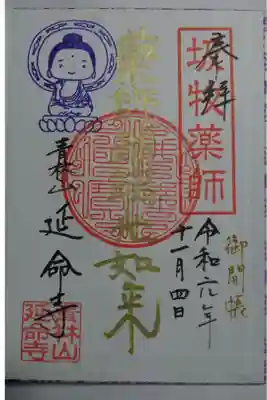 薬師
奉拝
御開帳
令和元年
十一月四日
薬師瑠璃光如来
青林山
延命寺
青林山
延命寺